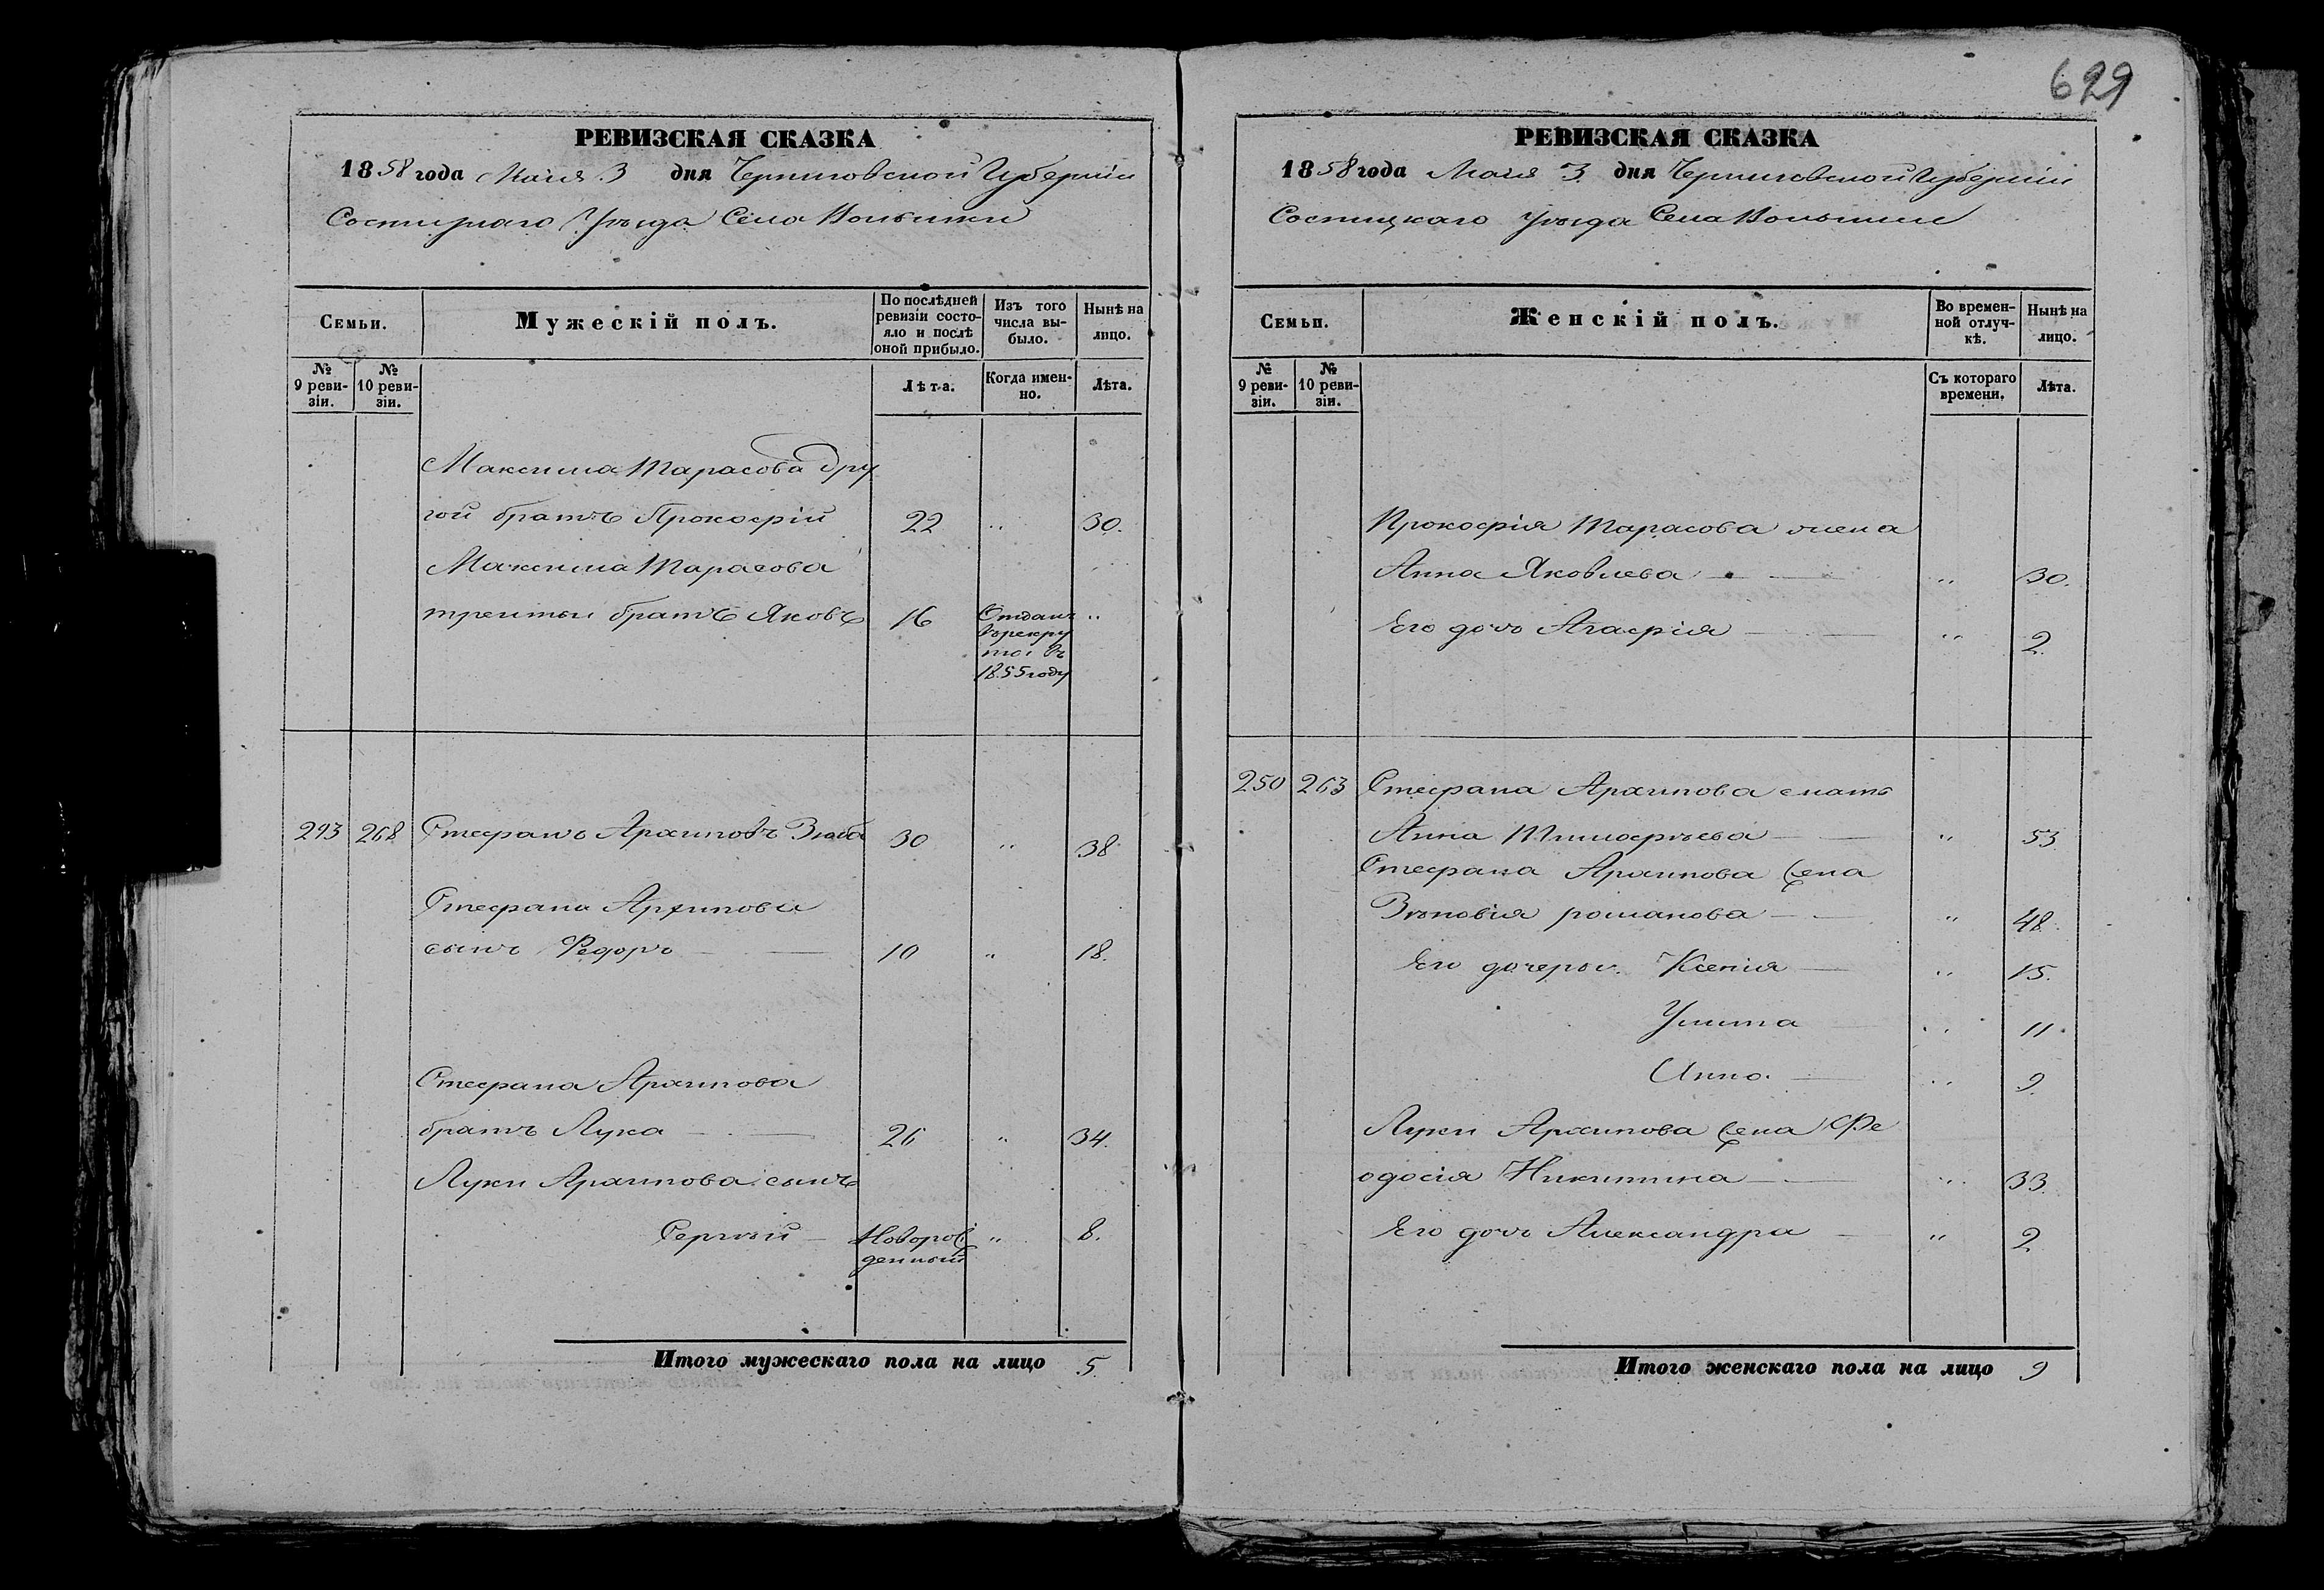 629
РЕВИЗСКАЯ СКАЗКА
1858 года Маія 3 дня Черниговской Губерніи
Сосницкаго Уѣзда Села
Семьи.
Мужескій полъ.
По послѣдней ревизіи состояло и послѣ оной прибыло.
Изъ того числа выбыло.
Нынѣ на лицо.
№ 9 ревизіи.
№ 10 ревизіи.
Лѣта.
Когда именно.
Лѣта.
Максима Тарасова дру
гой братъ Прокофій 22 " 30.
Максима Тарасова
третьи братъ Яковъ 16 Отданъ "
въ рекру
ты въ
1855 году
293 268 Стефанъ Архиповъ 30 " 38
Стефана Архипова
сынъ Федоръ 10 " 18.
Стефана Архипова
братъ Лука 26 " 34.
Луки Архипова сынъ
Сергѣй Новорож " 8.
денный
Итого мужескаго пола на лицо 5.
РЕВИЗСКАЯ СКАЗКА
1858 года Маія 3 дня Черниговской Губерніи
Сосницкаго Уѣзда Села
Семьи.
Женскій полъ.
Во временной отлучкѣ.
Нынѣ на лицо.
№ 9 ревизіи.
№ 10 ревизіи.
Съ котораго времени.
Лѣта.
Прокофія Тарасова жена
Анна Яковлева " 30.
Его дочь Агафія " 2.
250 263 Стефана Архипова мать
Анна Тимофѣева " 53
Стефана Архипова жена
Зѣновія романова " 48.
Его дочеры. Ксенія " 15.
Улита " 11.
Анна. " 9
Луки Архипова жена Фе
одосія Никитина " 33.
Его дочь Александра " 2
Итого женскаго пола на лицо 9